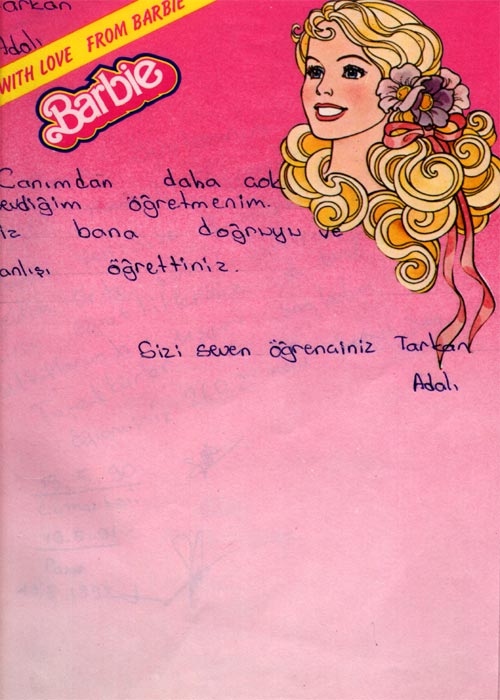 arkan
Adalı
WITH LOVE FROM BARBIE
Barbie
Canımdan daha çok
evdiğim öğretmenim.
iz bana doğruyu ve
anlışı öğrettiniz.
Sizi seven öğrenciniz Tarkan
Adalı